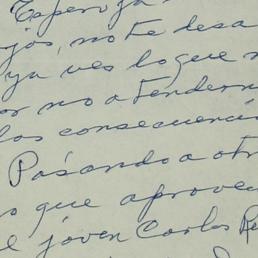 Espero ya
jos, no te desa
ya ves lo que
or no atender
las consecuenci
Pasando a otr
o que aprove
l joven Carlos Re